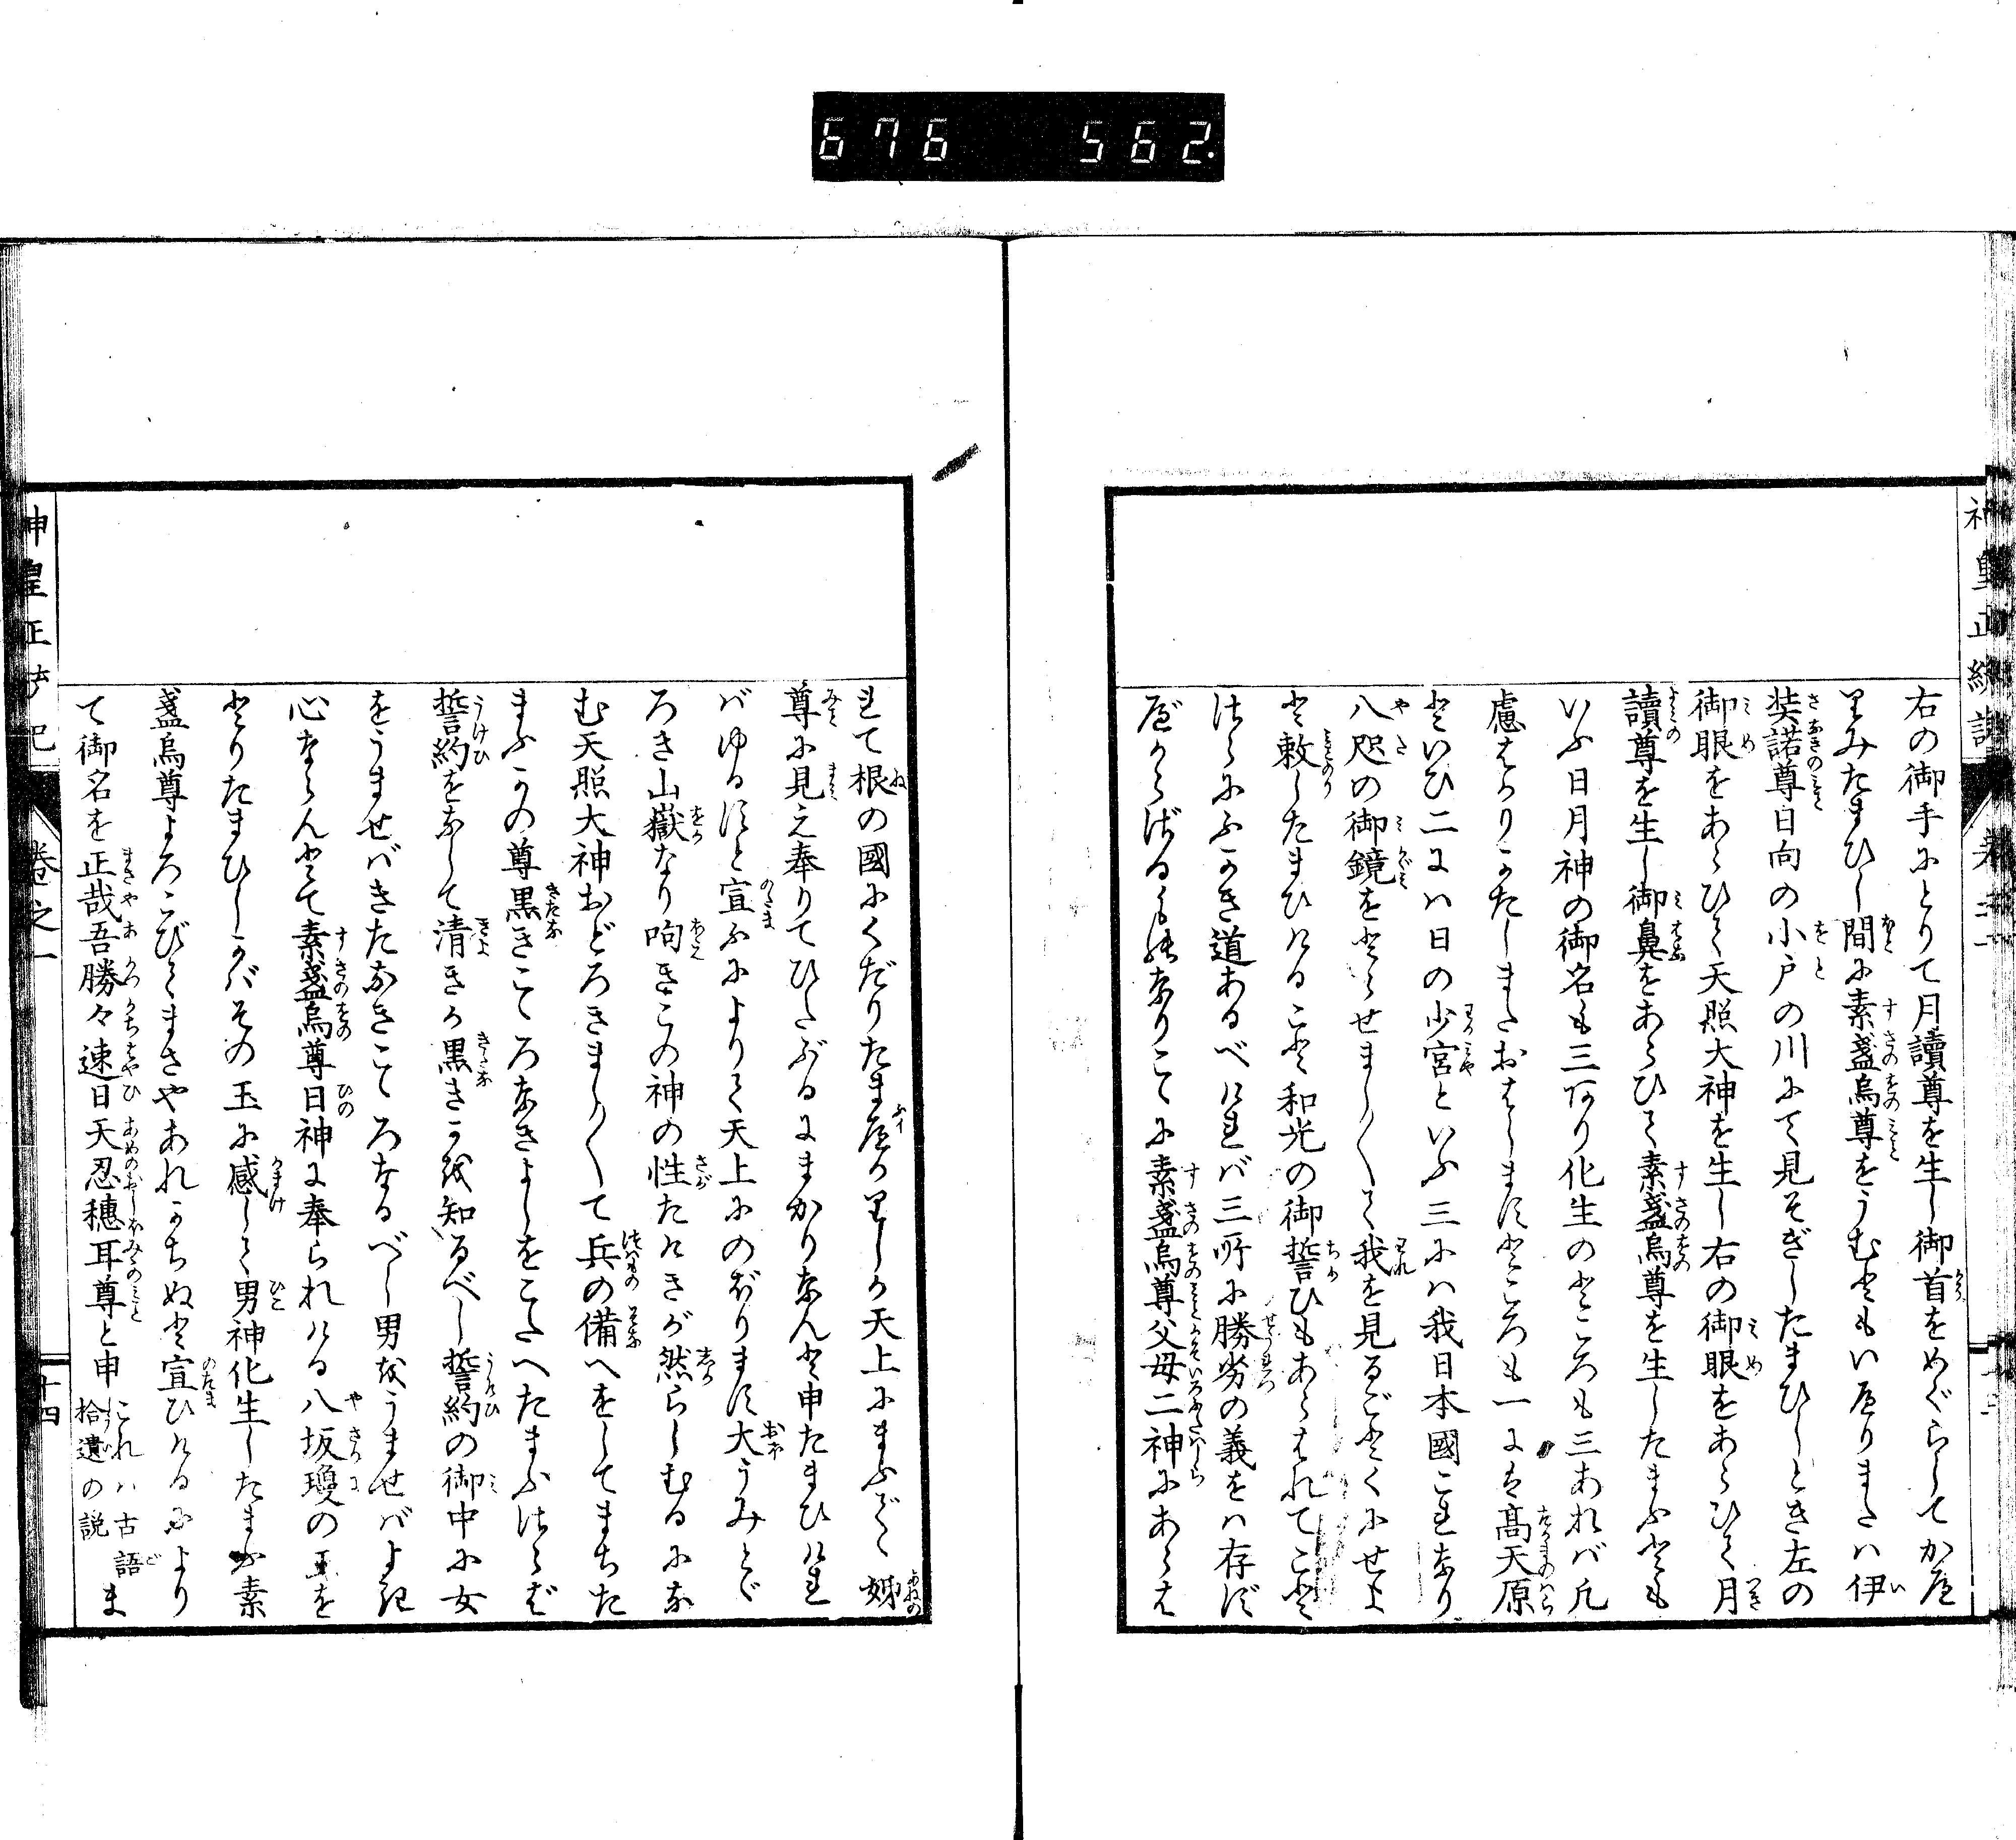 676 562.
神皇正統記
右の御手にとりて月讀尊を生し御首をめぐらしてかへ
りみたまひし間に素盞烏尊をうむともいへりまたハ伊
弉諾尊日向の小戸の川にて見そぎしたまひしとき左の
御眼をあらひて天照大神を生し右の御眼をあらひて月
讀尊を生し御鼻をあらひて素盞烏尊を生したまふとも
いふ日月神の御名も三あり化生のところも三あれバ凡
慮はかりがたしまたおはしますところも一には髙天原
といひ二にハ日の少宮といふ三にハ我日本國これなり
八咫の御鏡をとらせまし〱て我を見るごとくにせよ
と敕したまひけること和光の御誓ひもあらはれてこと
さらにふかき道あるべければ三所に勝劣の義をハ存ず
べからざるにや
こゝに素盞烏尊父母二神にあらは
れて根の國にくだりたまへりしが天上にまふでゝ姊
尊に見え奉りてひたぶるにまかりなんと申たまひけれ
バゆるすと宣ふによりて天上にのぼります大うみとど
ろき山嶽なり吼きこの神の性たけきが然らしむるにな
む天照大神おどろきまし〱て兵の備へをしてまちた
まふかの尊黒きこゝろなきよしをこたへたまふさらば
誓約をなして清きか黒きかを知るべし誓約の御中に女
をうませバきたなきこゝろなるべし男をうませバよき
心ならんとて素盞烏尊日神に奉られける八坂瓊の玉を
とりたまひしかバその玉に感して男神化生したまふ素
盞烏尊よろこびてまさやあれかちぬと宣ひけるによ
り
て御名を正哉吾勝々速日天忍穗耳尊と申これハ古語
拾遺の説 ま
神皇正統記 卷之一 十四